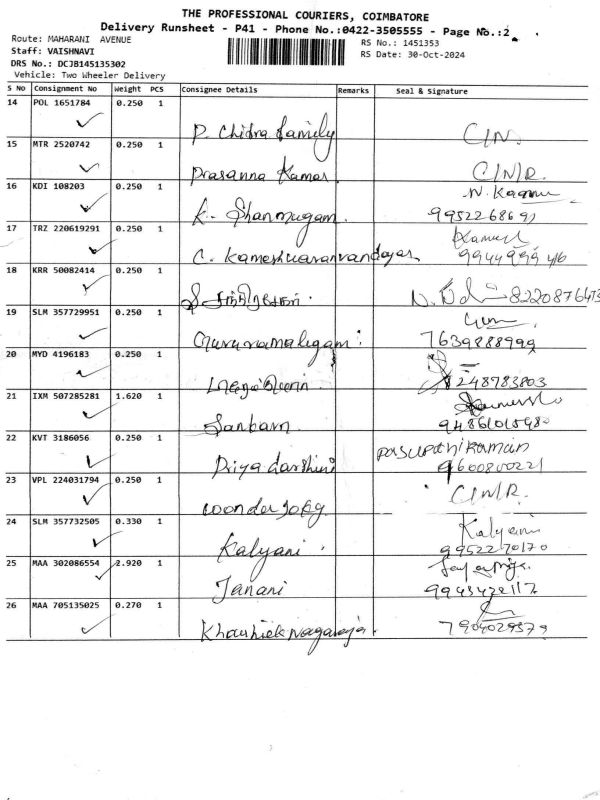 THE PROFESSIONAL COURIERS, COIMBATORE
Delivery Runsheet - P41 - Phone No.:0422-3505555 - Page No.:2
Route: MAHARANI AVENUE
RS No.: 1451353
Staff: VAISHNAVI
RS Date: 30-Oct-2024
DRS No.: DCJB145135302
Vehicle: Two Wheeler Delivery
S No Consignment No Weight PCS Consignee Details Remarks Seal & Signature
14 POL 1651784 0.250 1
P. Chidra family C/N.
15 MTR 2520742 0.250 1
Prasanna Kamar C/N/R.
16 KDI 108203 0.250 1
K. Shanmugam. 9952268691
17 TRZ 220619291 0.250 1
C. Kameshwaranvandayar 9944999 416
18 KRR 50082414 0.250 1
8220876473
19 SLM 357729951 0.250 1
Gurunamaligam 7639888999
20 MYD 4196183 0.250 1
248783803
21 IXM 507285281 1.620 1
Sanbarn 94861015980
22 KVT 3186056 0.250 1
pasupathikamain
Priya darshini 9600800221
23 VPL 224031794 0.250 1
C/N/R.
24 SLM 357732505 0.330 1
Kalyani
Kalyani. 9952270170
25 MAA 302086554 2.920 1
Janani
26 MAA 705135025 0.270 1
Khaushieknagaraja. 7904029379